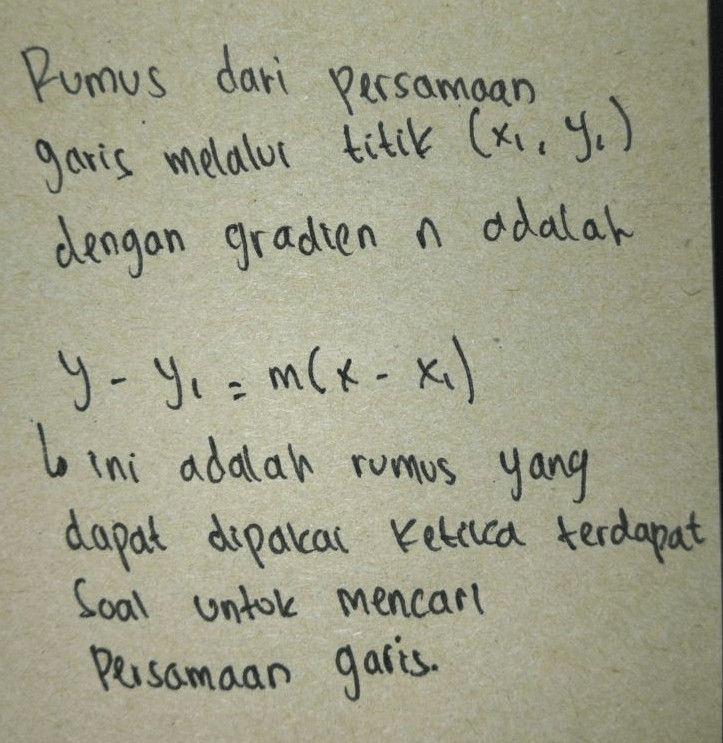 Rumus dari persamaan
garis melalui titik (x₁, y₁)
dengan gradien n adalah
y - y₁ = m(x - x₁)
↳ ini adalah rumus yang
dapat dipakai ketika terdapat
Soal untuk mencari
Persamaan garis.